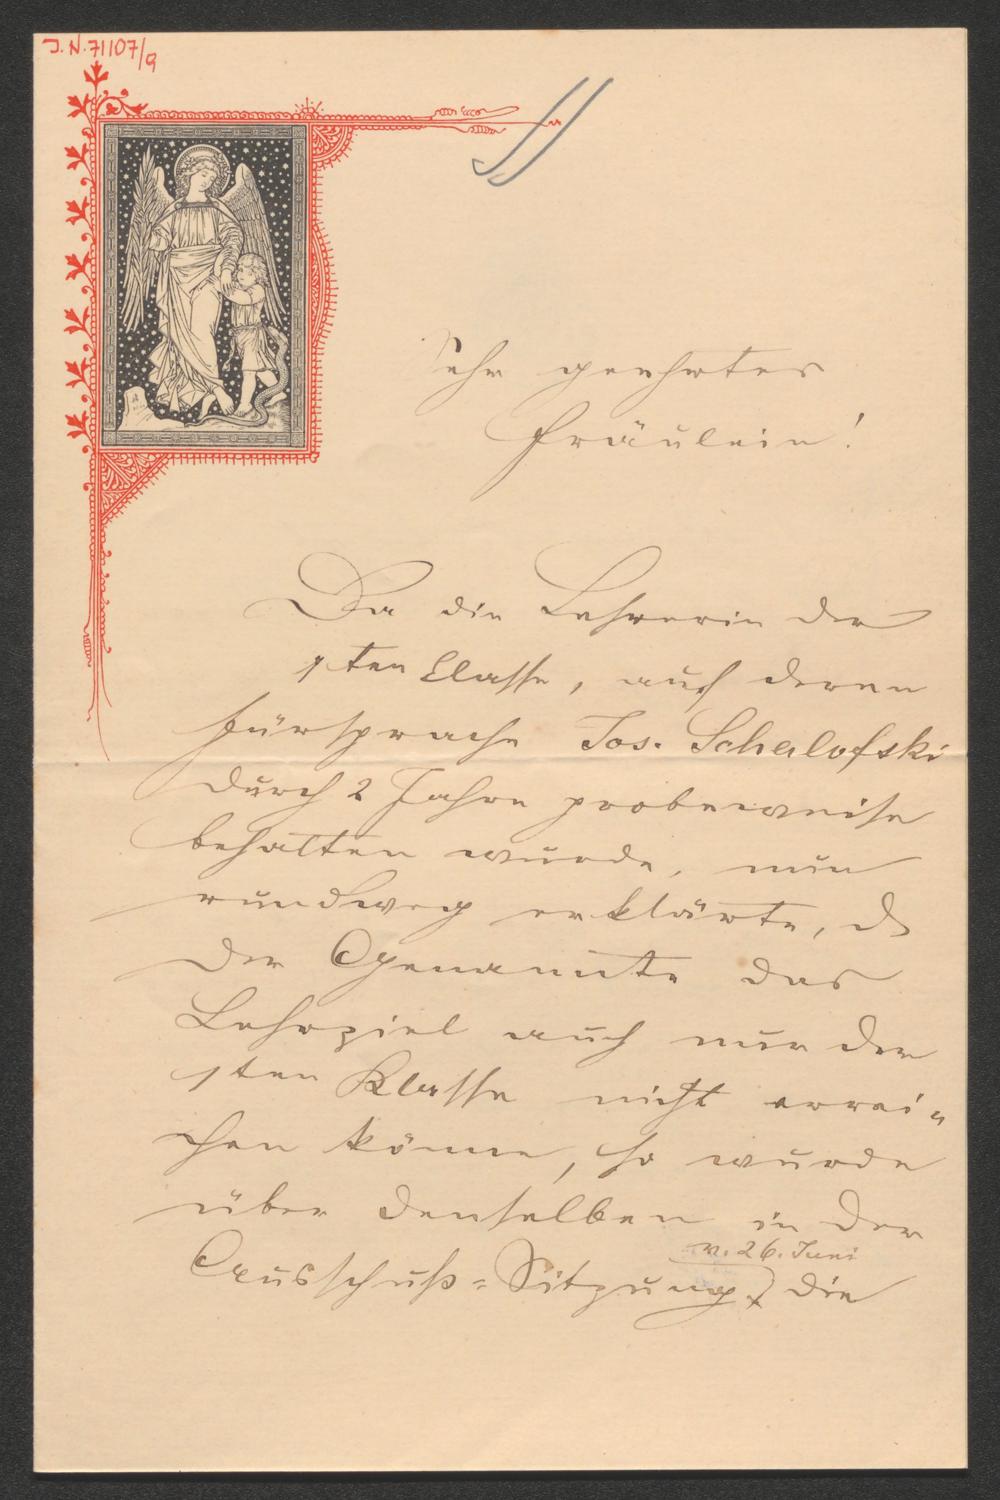 J. N. 71107/9
Sehr geehrtes
Fräulein!
Da die Lehrerin der
1ten Classe, auf deren
Fürsprache Jos. Schalofski
durch 2 Jahre probeweise
behalten wurde, nun
rundweg erklärte, dſs
der Genannte das
Lehrziel auch nur der
1ten Klasse nicht errei-
chen könne, so wurde
über denselben in der
v. 26. Juni
Ausschuß-Sitzung die